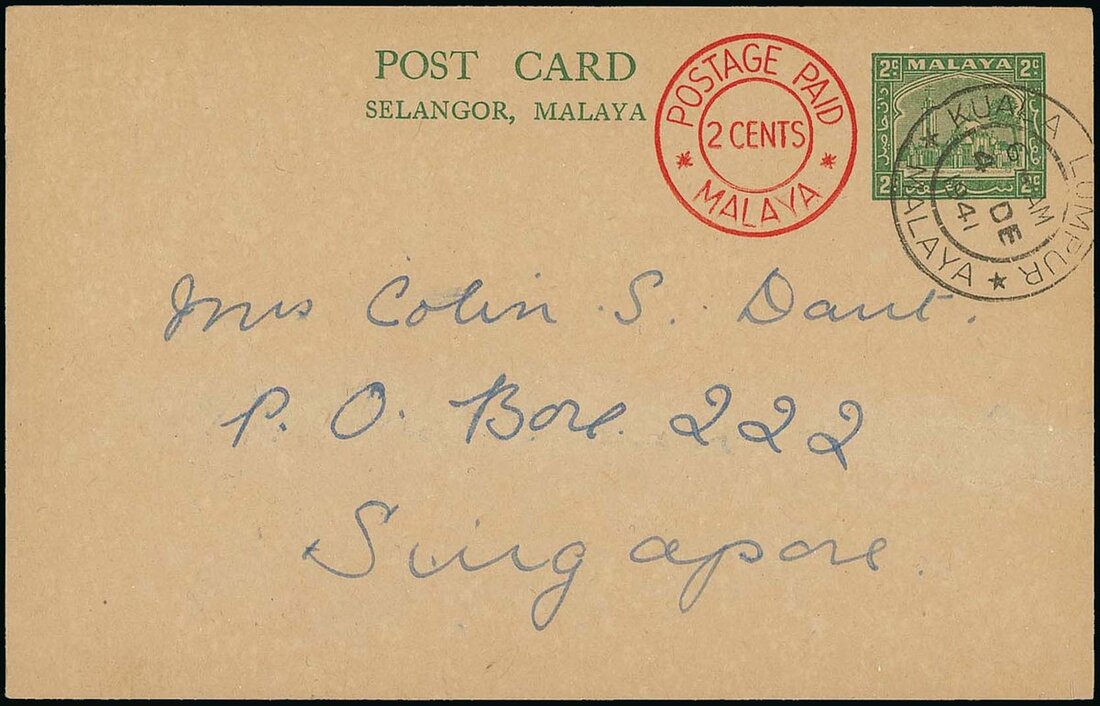 POST CARD
SELANGOR, MALAYA
POSTAGE PAID
2 CENTS
* MALAYA *
2c MALAYA 2c
2c 2c
KUALA LUMPUR
AM
4 DE
1941
★ MALAYA ★
Mrs Colin S. Daut.
P. O. Box. 222
Singapore.